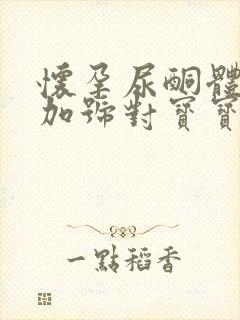 懷孕尿酮體
加號對寶寶
一點稻香